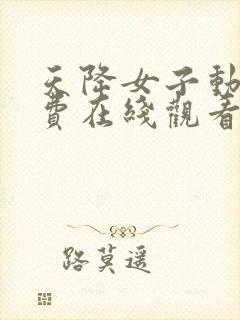 天降女子動
費在綫觀看
路莫遥